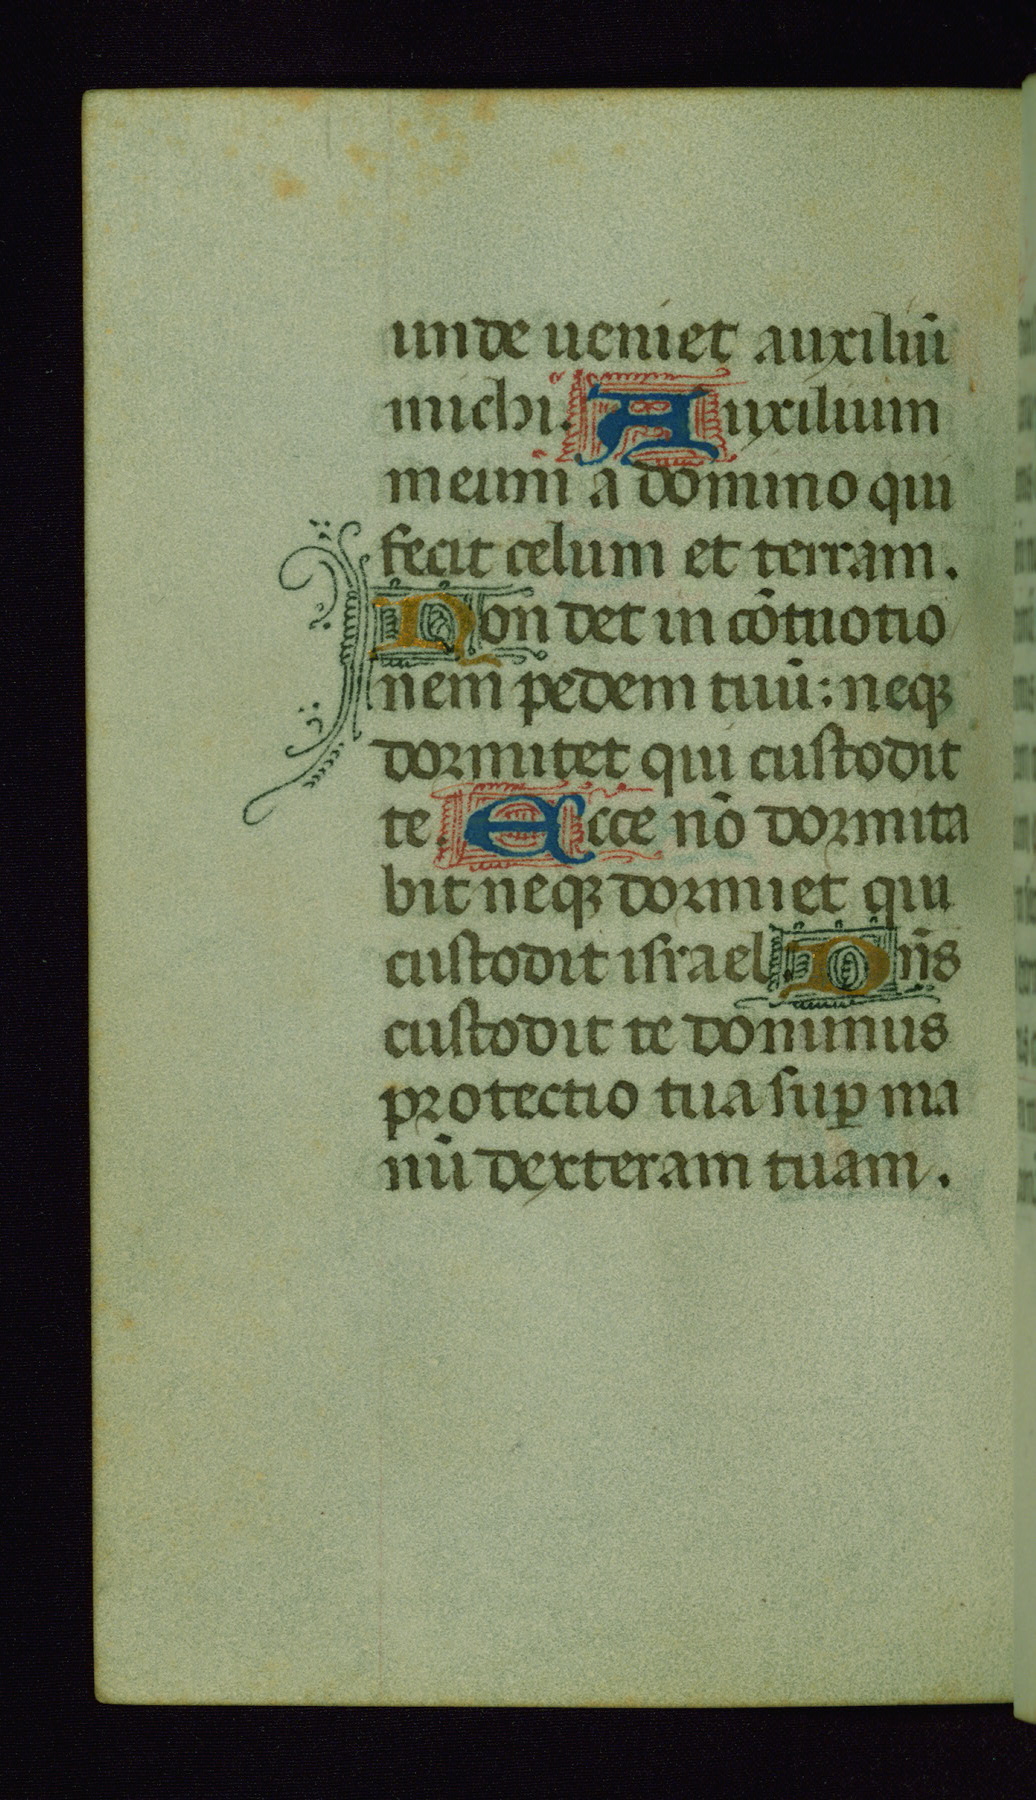 unde ueniet auxiliū
michi. Auxilium
meum a domino qui
fecit celum et terram.
Non det in cōmotio
nem pedem tuū: neqꝫ
dormitet qui custodit
te. Ecce nō dormita
bit neqꝫ dormiet qui
custodit israel Dn̄s
custodit te dominus
protectio tua suꝑ ma
nū dexteram tuam.